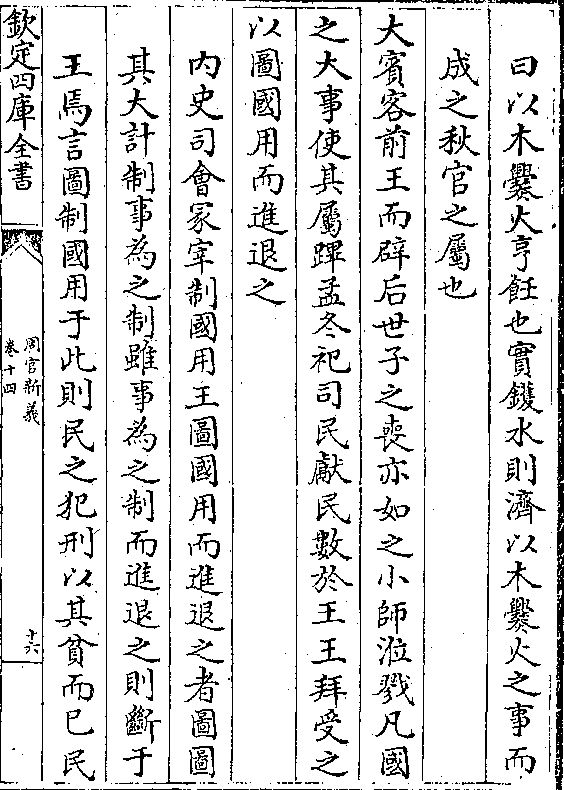 曰以木爨火亨飪也實鑊水則濟以木爨火之事而
成之秋官之屬也
大賓客前王而辟后世子之喪亦如之小師涖戮凡國
之大事使其屬蹕孟冬祀司民獻民數於王王拜受之
以圖國用而進退之
內史司會冡宰制國用王圖國用而進退之者圖圖
其大計制事為之制雖事為之制而進退之則斷于
王焉言圖制國用于此則民之犯刑以其貧而已民
欽定四庫全書
周官新義
卷十四
十六